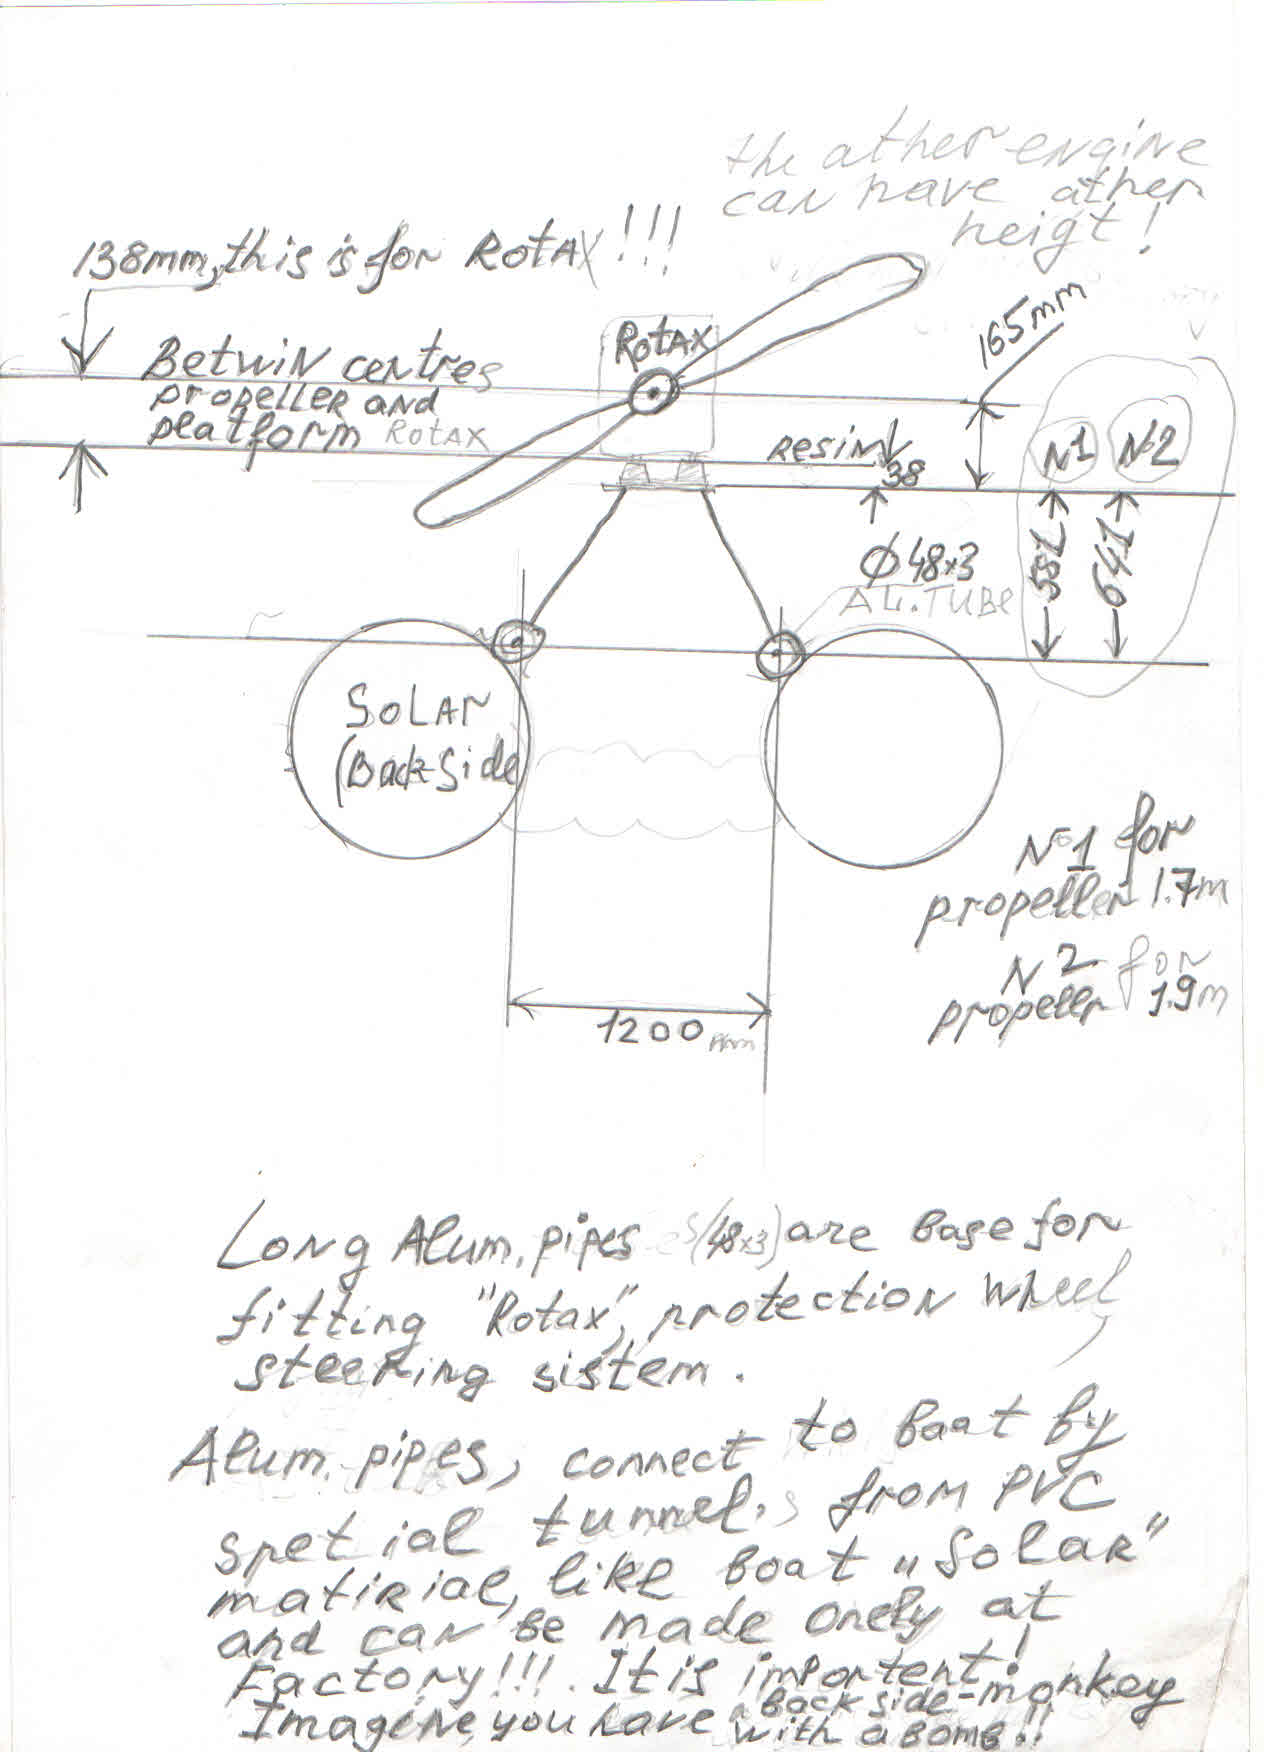 the ather engine
can have ather
heigt!
138mm, this is for RotAX!!!
Betwin centres
propeller and
platform RotAX
RotAX
165mm
resin
38
N1
N2
581
641
Φ48×3
AL.TUBE
SOLAR
(Back Side
1200 mm
N1 for
propeller 1.7m
N2 for
propeller 1.9m
Long Alum. pipes (48×3) are base for
fitting "Rotax", protection wheel,
steering sistem.
Alum. pipes, connect to boat by
spetial tunnels from PVC
matirial, like boat „Solar"
and can be made onely at
Factory!!!. It is importent!
Imagine, you have a back side-monkey
with a bomb!!